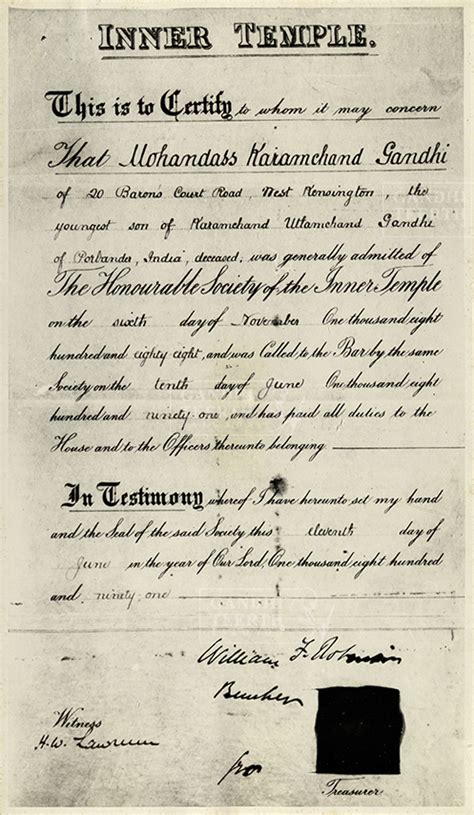 INNER TEMPLE.
This is to Certify to whom it may concern
That Mohandass Karamchand Gandhi
of 20 Barons Court Road, West Kensington, the
youngest son of Karamchand Uttamchand Gandhi
of Porbandar, India, deceased, was generally admitted of
The Honourable Society of the Inner Temple
on the sixth day of November One thousand eight
hundred and eighty eight, and was Called to the Bar by the same
Society on the tenth day of June One thousand eight
hundred and ninety-one, and has paid all duties to the
House and to the Officers thereunto belonging
In Testimony whereof I have hereunto set my hand
and the Seal of the said Society this eleventh day of
June in the year of Our Lord, One thousand eight hundred
and ninety-one
William F.
Witness
H.W.
for
Treasurer